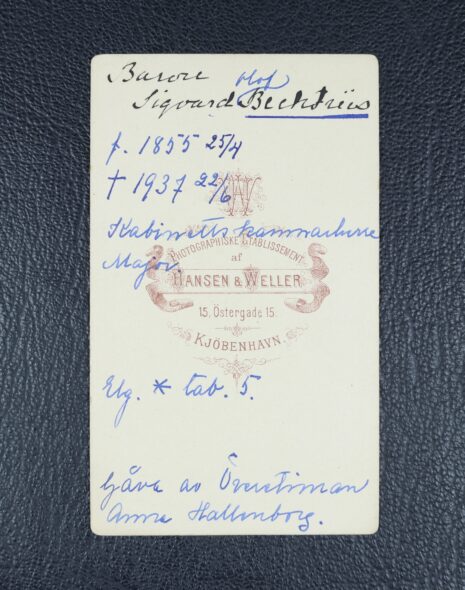 Baron Olof
Sigvard Beck Friis
f. 1855 25/4
† 1937 22/6
HW
Kabinettskammarherre
PHOTOGRAPHISKE ETABLISSEMENT
af
Major.
HANSEN & WELLER
15, Östergade 15.
KJÖBENHAVN.
Elg. * tab. 5.
Gåva av
Anna Hallenborg.